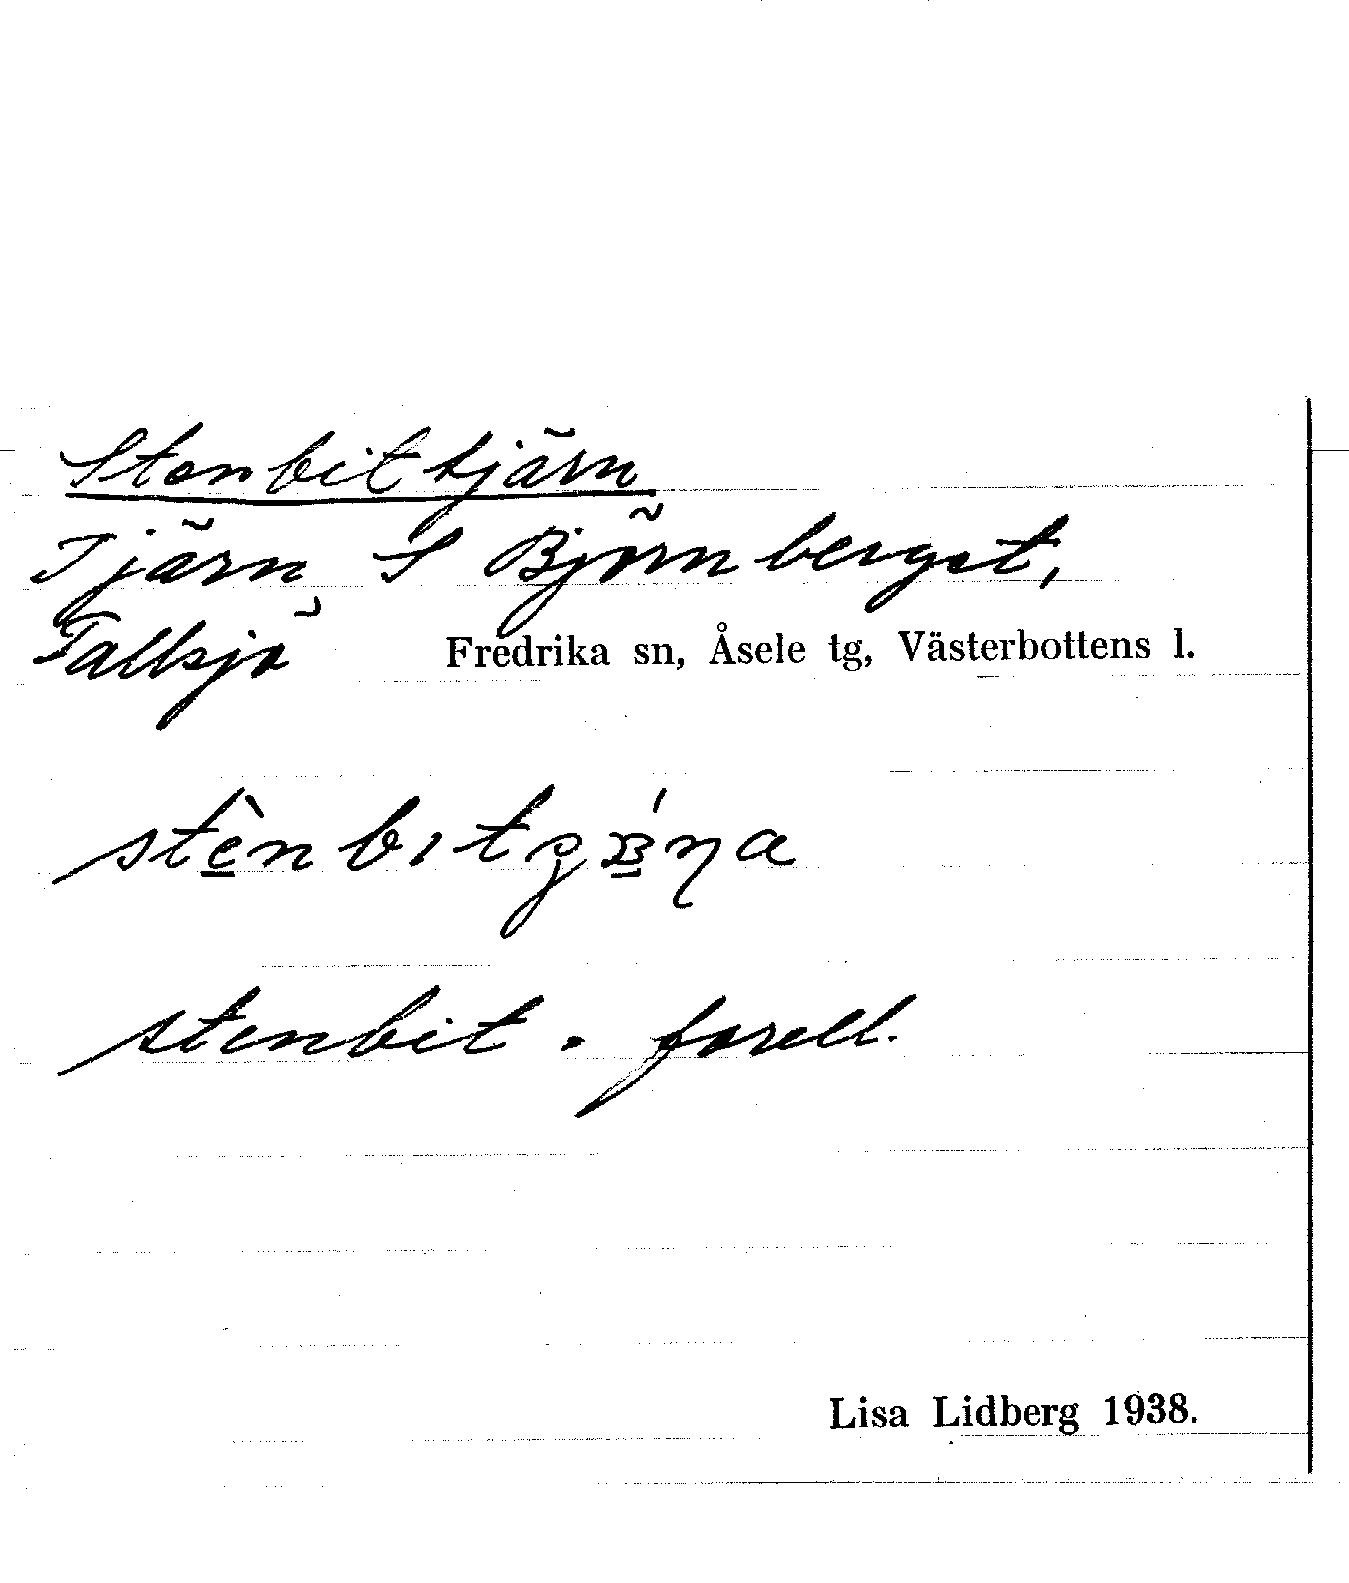 Stenbittjärn
Tjärn S Björnberget,
Tallsjö Fredrika sn, Åsele tg, Västerbottens l.
stenbit . forell.
Lisa Lidberg 1938.